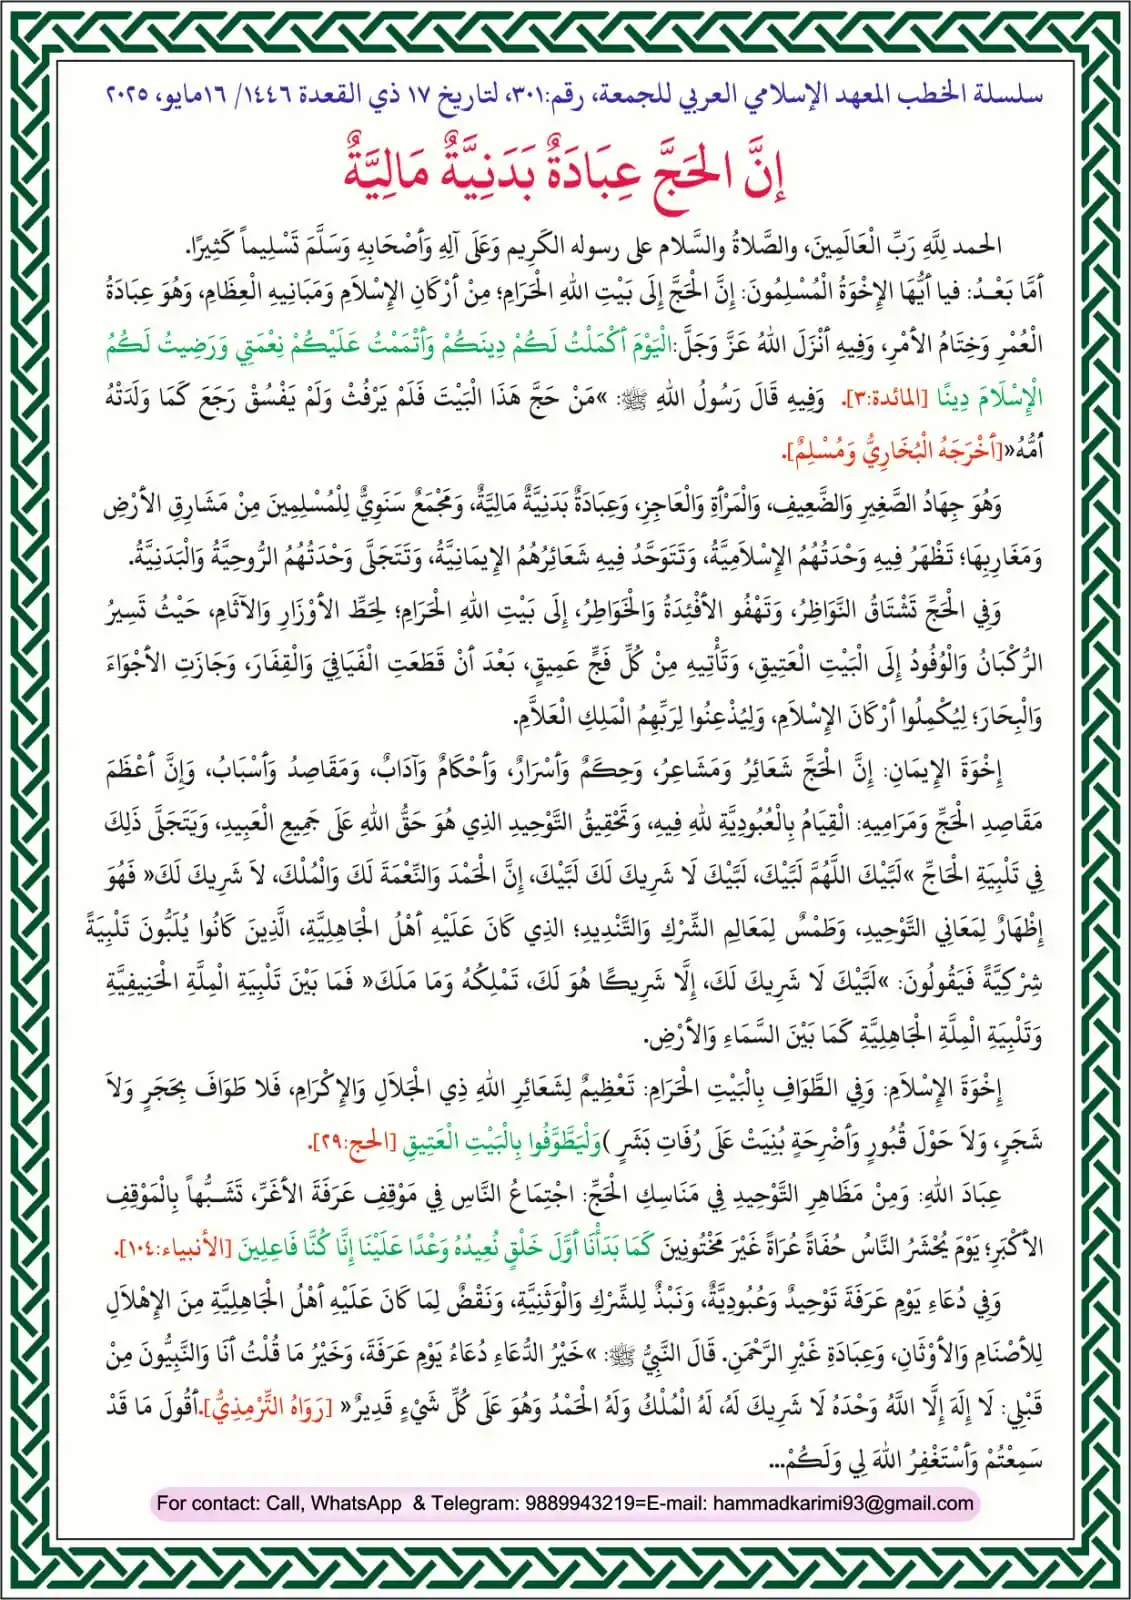 سلسلة الخطب المعهد الإسلامي العربي للجمعة، رقم:٣٠١، لتاريخ ١٧ ذي القعدة ١٤٤٦/ ١٦مايو، ٢٠٢٥
إنَّ الحَجَّ عِبَادَةٌ بَدَنِيَّةٌ مَالِيَّةٌ
الحمد لِلَّهِ رَبِّ الْعَالَمِينَ، والصَّلاةُ والسَّلام على رسوله الكَرِيم وَعَلَى آلِهِ وَأَصْحَابِهِ وَسَلَّمَ تَسْلِيماً كَثِيرًا.
أمَّا بَعْـدُ: فيا أيُّهَا الإِخْوَةُ الْمُسْلِمُونَ: إِنَّ الْحَجَّ إِلَى بَيْتِ اللهِ الْحَرَامِ؛ مِنْ أَرْكَانِ الإِسْلاَمِ وَمَبَانِيهِ الْعِظَامِ، وَهُوَ عِبَادَةُ
الْعُمْرِ وَخِتَامُ الأَمْرِ، وَفِيهِ أَنْزَلَ اللهُ عَزَّ وَجَلَّ:الْيَوْمَ أَكْمَلْتُ لَكُمْ دِينَكُمْ وَأَتْمَمْتُ عَلَيْكُمْ نِعْمَتِي وَرَضِيتُ لَكُمُ
الْإِسْلَامَ دِينًا [المائدة:٣]. وَفِيهِ قَالَ رَسُولُ اللهِ ﷺ: »مَنْ حَجَّ هَذَا الْبَيْتَ فَلَمْ يَرْفُثْ وَلَمْ يَفْسُقْ رَجَعَ كَمَا وَلَدَتْهُ
أُمُّهُ«[أَخْرَجَهُ الْبُخَارِيُّ وَمُسْلِمٌ].
وَهُوَ جِهَادُ الصَّغِيرِ وَالضَّعِيفِ، وَالْمَرْأَةِ وَالْعَاجِزِ، وَعِبَادَةٌ بَدَنِيَّةٌ مَالِيَّةٌ، وَمَجْمَعٌ سَنَوِيٌّ لِلْمُسْلِمِينَ مِنْ مَشَارِقِ الأَرْضِ
وَمَغَارِبِهَا؛ تَظْهَرُ فِيهِ وَحْدَتُهُمُ الإِسْلاَمِيَّةُ، وَتَتَوَحَّدُ فِيهِ شَعَائِرُهُمُ الإِيمَانِيَّةُ، وَتَتَجَلَّى وَحْدَتُهُمُ الرُّوحِيَّةُ وَالْبَدَنِيَّةُ.
وَفِي الْحَجِّ تَشْتَاقُ النَّوَاظِرُ، وَتَهْفُو الأَفْئِدَةُ وَالْخَوَاطِرُ، إِلَى بَيْتِ اللهِ الْحَرَامِ؛ لِحَطِّ الأَوْزَارِ وَالآثَامِ، حَيْثُ تَسِيرُ
الرُّكْبَانُ وَالْوُفُودُ إِلَى الْبَيْتِ الْعَتِيقِ، وَتَأْتِيهِ مِنْ كُلِّ فَجٍّ عَمِيقٍ، بَعْدَ أَنْ قَطَعَتِ الْفَيَافِيَ وَالْقِفَارَ، وَجَازَتِ الأَجْوَاءَ
وَالْبِحَارَ؛ لِيُكْمِلُوا أَرْكَانَ الإِسْلاَمِ، وَلِيُذْعِنُوا لِرَبِّهِمُ الْمَلِكِ الْعَلاَّمِ.
إِخْوَةَ الإِيمَانِ: إِنَّ الْحَجَّ شَعَائِرُ وَمَشَاعِرُ، وَحِكَمٌ وَأَسْرَارٌ، وَأَحْكَامٌ وَآدَابٌ، وَمَقَاصِدُ وَأَسْبَابُ، وَإِنَّ أَعْظَمَ
مَقَاصِدِ الْحَجِّ وَمَرَامِيهِ: الْقِيَامُ بِالْعُبُودِيَّةِ لِلهِ فِيهِ، وَتَحْقِيقُ التَّوْحِيدِ الذِي هُوَ حَقُّ اللهِ عَلَى جَمِيعِ الْعَبِيدِ، وَيَتَجَلَّى ذَلِكَ
فِي تَلْبِيَةِ الْحَاجِّ »لَبَّيْكَ اللَّهُمَّ لَبَّيْكَ، لَبَّيْكَ لَا شَرِيكَ لَكَ لَبَّيْكَ، إِنَّ الْحَمْدَ وَالنِّعْمَةَ لَكَ وَالْمُلْكَ، لاَ شَرِيكَ لَكَ« فَهُوَ
إِظْهَارٌ لِمَعَانِي التَّوْحِيدِ، وَطَمْسٌ لِمَعَالِمِ الشِّرْكِ وَالتَّنْدِيدِ؛ الذِي كَانَ عَلَيْهِ أَهْلُ الْجَاهِلِيَّةِ، الَّذِينَ كَانُوا يُلَبُّونَ تَلْبِيَةً
شِرْكِيَّةً فَيَقُولُونَ: »لَبَّيْكَ لَا شَرِيكَ لَكَ، إِلَّا شَرِيكًا هُوَ لَكَ، تَمْلِكُهُ وَمَا مَلَكَ« فَمَا بَيْنَ تَلْبِيَةِ الْمِلَّةِ الْحَنِيفِيَّةِ
وَتَلْبِيَةِ الْمِلَّةِ الْجَاهِلِيَّةِ كَمَا بَيْنَ السَّمَاءِ وَالأَرْضِ.
إِخْوَةَ الإِسْلاَمِ: وَفِي الطَّوَافِ بِالْبَيْتِ الْحَرَامِ: تَعْظِيمٌ لِشَعَائِرِ اللهِ ذِي الْجَلاَلِ وَالإِكْرَامِ، فَلا طَوَافَ بِحَجَرٍ وَلاَ
شَجَرٍ، وَلاَ حَوْلَ قُبُورٍ وَأَضْرِحَةٍ بُنِيَتْ عَلَى رُفَاتِ بَشَرٍ )وَلْيَطَّوَّفُوا بِالْبَيْتِ الْعَتِيقِ [الحج:٢٩].
عِبَادَ اللهِ: وَمِنْ مَظَاهِرِ التَّوْحِيدِ فِي مَنَاسِكِ الْحَجِّ: اجْتِمَاعُ النَّاسِ فِي مَوْقِفِ عَرَفَةَ الأَغَرِّ، تَشَـبُّهاً بِالْمَوْقِفِ
الأَكْبَرِ؛ يَوْمَ يُحْشَرُ النَّاسُ حُفَاةً عُرَاةً غَيْرَ مَخْتُونِينَ كَمَا بَدَأْنَا أَوَّلَ خَلْقٍ نُعِيدُهُ وَعْدًا عَلَيْنَا إِنَّا كُنَّا فَاعِلِينَ [الأنبياء:١٠٤].
وَفِي دُعَاءِ يَوْمِ عَرَفَةَ تَوْحِيدٌ وَعُبُودِيَّةٌ، وَنَبْذٌ لِلشِّرْكِ وَالْوَثَنِيَّةِ، وَنَقْضٌ لِمَا كَانَ عَلَيْهِ أَهْلُ الْجَاهِلِيَّةِ مِنَ الإِهْلاَلِ
لِلأَصْنَامِ وَالأَوْثَانِ، وَعِبَادَةِ غَيْرِ الرَّحْمَنِ. قَالَ النَّبِيُّ ﷺ: »خَيْرُ الدُّعَاءِ دُعَاءُ يَوْمِ عَرَفَةَ، وَخَيْرُ مَا قُلْتُ أَنَا وَالنَّبِيُّونَ مِنْ
قَبْلِي: لَا إِلَهَ إِلَّا اللَّهُ وَحْدَهُ لَا شَرِيكَ لَهُ، لَهُ الْمُلْكُ وَلَهُ الْحَمْدُ وَهُوَ عَلَى كُلِّ شَيْءٍ قَدِيرٌ« [رَوَاهُ التِّرْمِذِيُّ].أَقُولَ مَا قَدْ
سَمِعْتُمْ وَأَسْتَغْفِرُ اللهَ لِي وَلَكُمْ...
For contact: Call, WhatsApp & Telegram: 9889943219=E-mail: hammadkarimi93@gmail.com